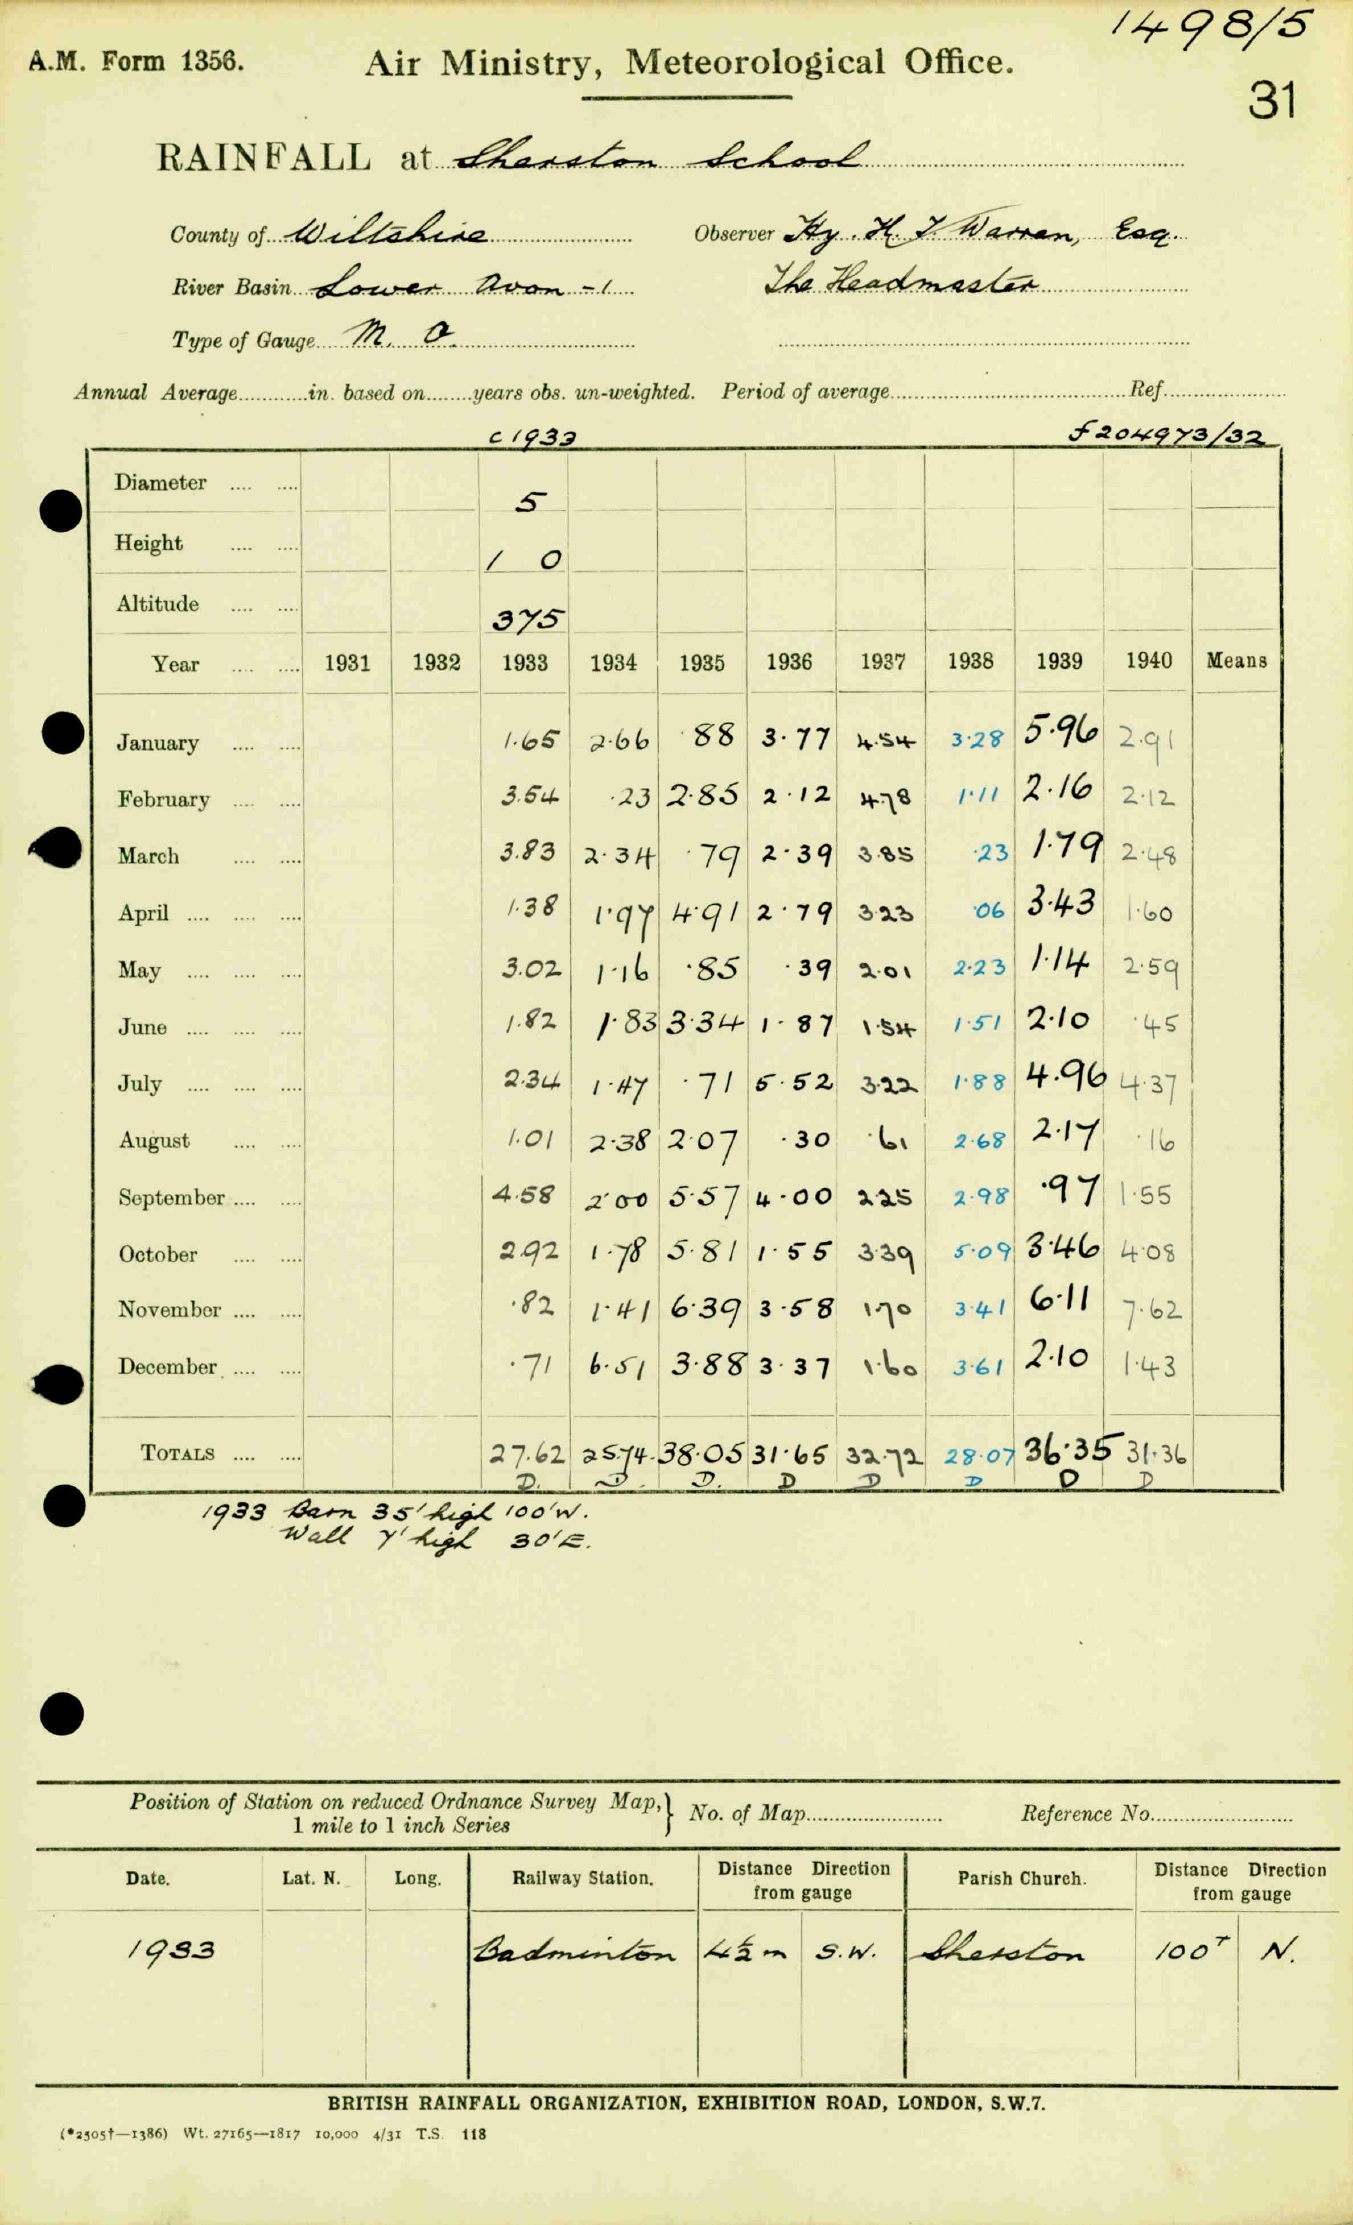 1498/5
A.M. Form 1356. Air Ministry, Meteorological Office.
31
RAINFALL at Sherston School
County of Wiltshire Observer Hy. H. J. Warren, Esq.
River Basin Lower Avon -1 The Headmaster
Type of Gauge M. O.
Annual Average in. based on years obs. un-weighted. Period of average Ref.
c 1933 f204973/32
Diameter 5
Height 1 0
Altitude 375
Year 1931 1932 1933 1934 1935 1936 1937 1938 1939 1940 Means
January 1.65 2.66 .88 3.77 4.54 3.28 5.96 2.91
February 3.54 .23 2.85 2.12 4.78 1.11 2.16 2.12
March 3.83 2.34 .79 2.39 3.85 .23 1.79 2.48
April 1.38 1.97 4.91 2.79 3.23 .06 3.43 1.60
May 3.02 1.16 .85 .39 2.01 2.23 1.14 2.59
June 1.82 1.83 3.34 1.87 1.54 1.51 2.10 .45
July 2.34 1.47 .71 5.52 3.22 1.88 4.96 4.37
August 1.01 2.38 2.07 .30 .61 2.68 2.17 .16
September 4.58 2.00 5.57 4.00 2.25 2.98 .97 1.55
October 2.92 1.78 5.81 1.55 3.39 5.09 3.46 4.08
November .82 1.41 6.39 3.58 1.70 3.41 6.11 7.62
December .71 6.51 3.88 3.37 1.60 3.61 2.10 1.43
TOTALS 27.62 25.74 38.05 31.65 32.72 28.07 36.35 31.36
D. D. D. D D D D D
1933 Barn 35' high 100' W.
Wall 7' high 30' E.
Position of Station on reduced Ordnance Survey Map, } No. of Map Reference No.
1 mile to 1 inch Series
Date. Lat. N. Long. Railway Station. Distance Direction from gauge Parish Church. Distance Direction from gauge
1933 Badminton 4½ m S.W. Sherston 100ʸ N.
BRITISH RAINFALL ORGANIZATION, EXHIBITION ROAD, LONDON, S.W.7.
(*2505†—1386) Wt. 27165—1817 10,000 4/31 T.S. 118